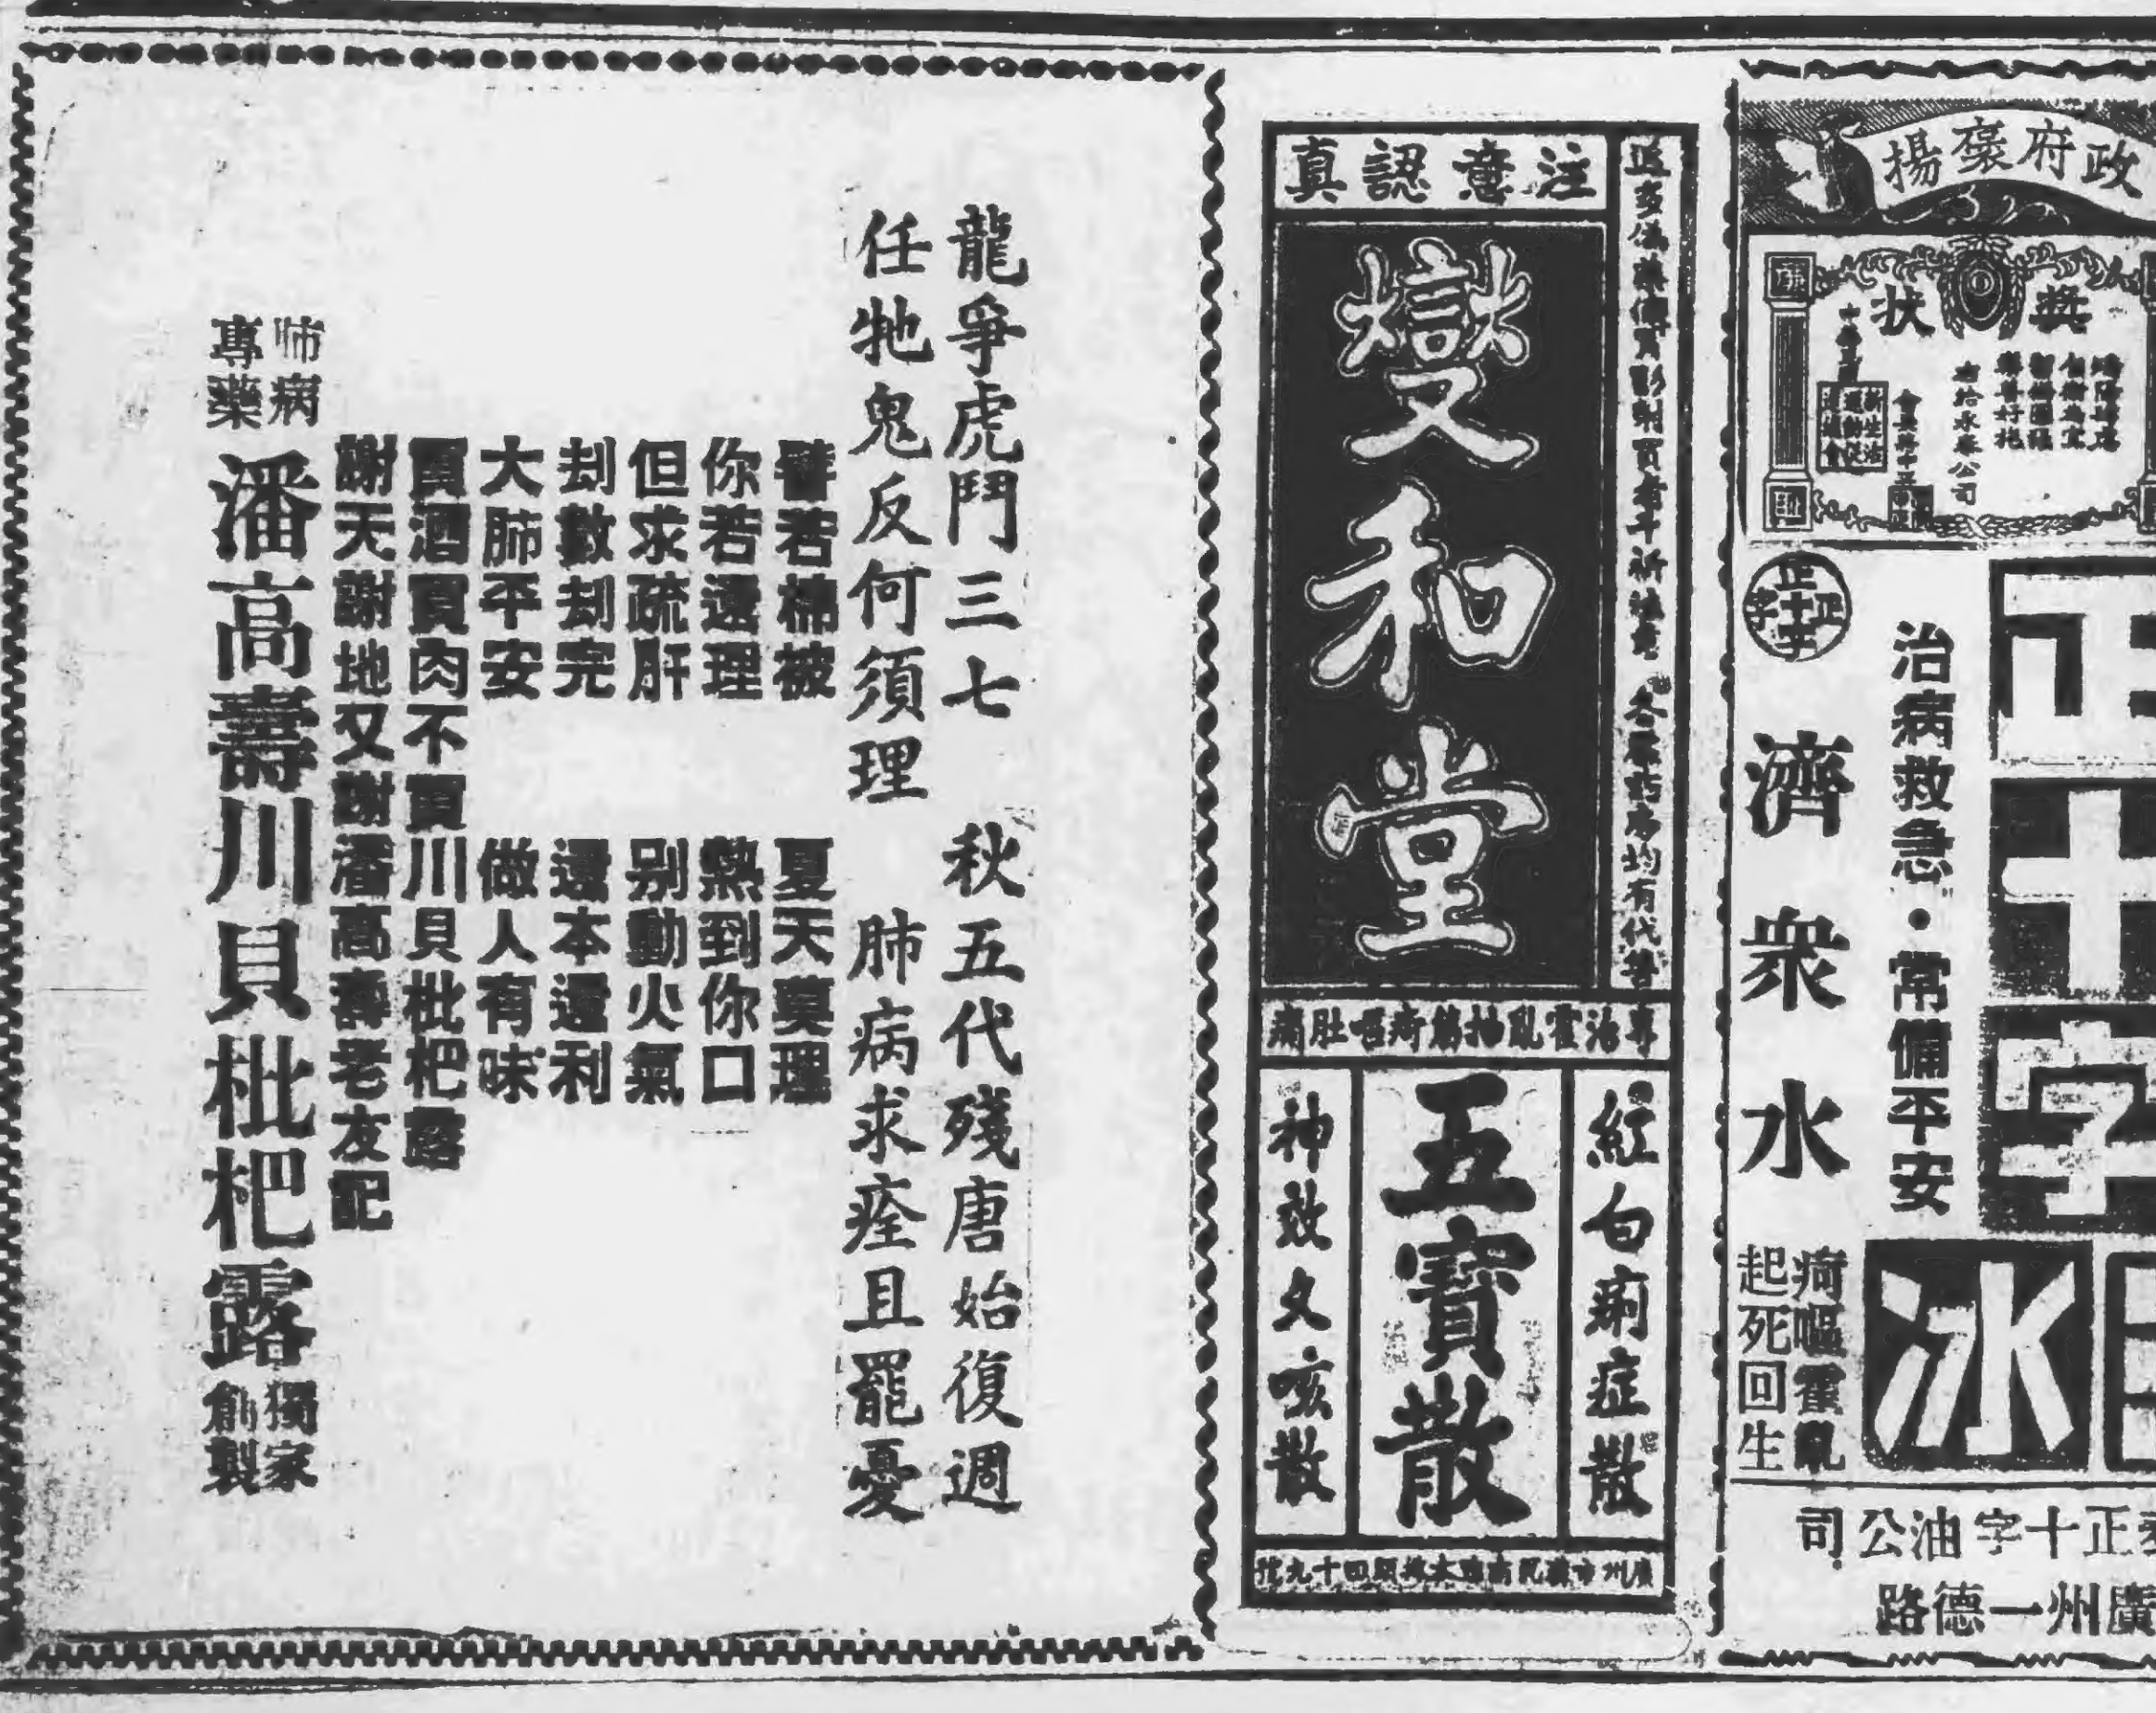 政府褒揚
獎狀
正十字
治病救急·常備平安
濟衆水
疴嘔霍亂
起死回生
正十字油公司
廣州一德路
注意認真
燮和堂
各藥店均有代售
專治霍亂抽筋疴嘔肚痛
紅白痢症散
五寶散
神效久咳散
龍爭虎鬥三七 秋五代殘唐始復週
任牠鬼反何須理 肺病求痊且罷憂
譬若棉被 夏天莫理
你若還理 熱到你口
但求疏肝 别動火氣
刦數刦完 還本還利
大肺平安 做人有味
買酒買肉不買川貝枇杷露
謝天謝地又謝潘高壽老友記
肺病專藥
潘高壽川貝枇杷露
獨家創製